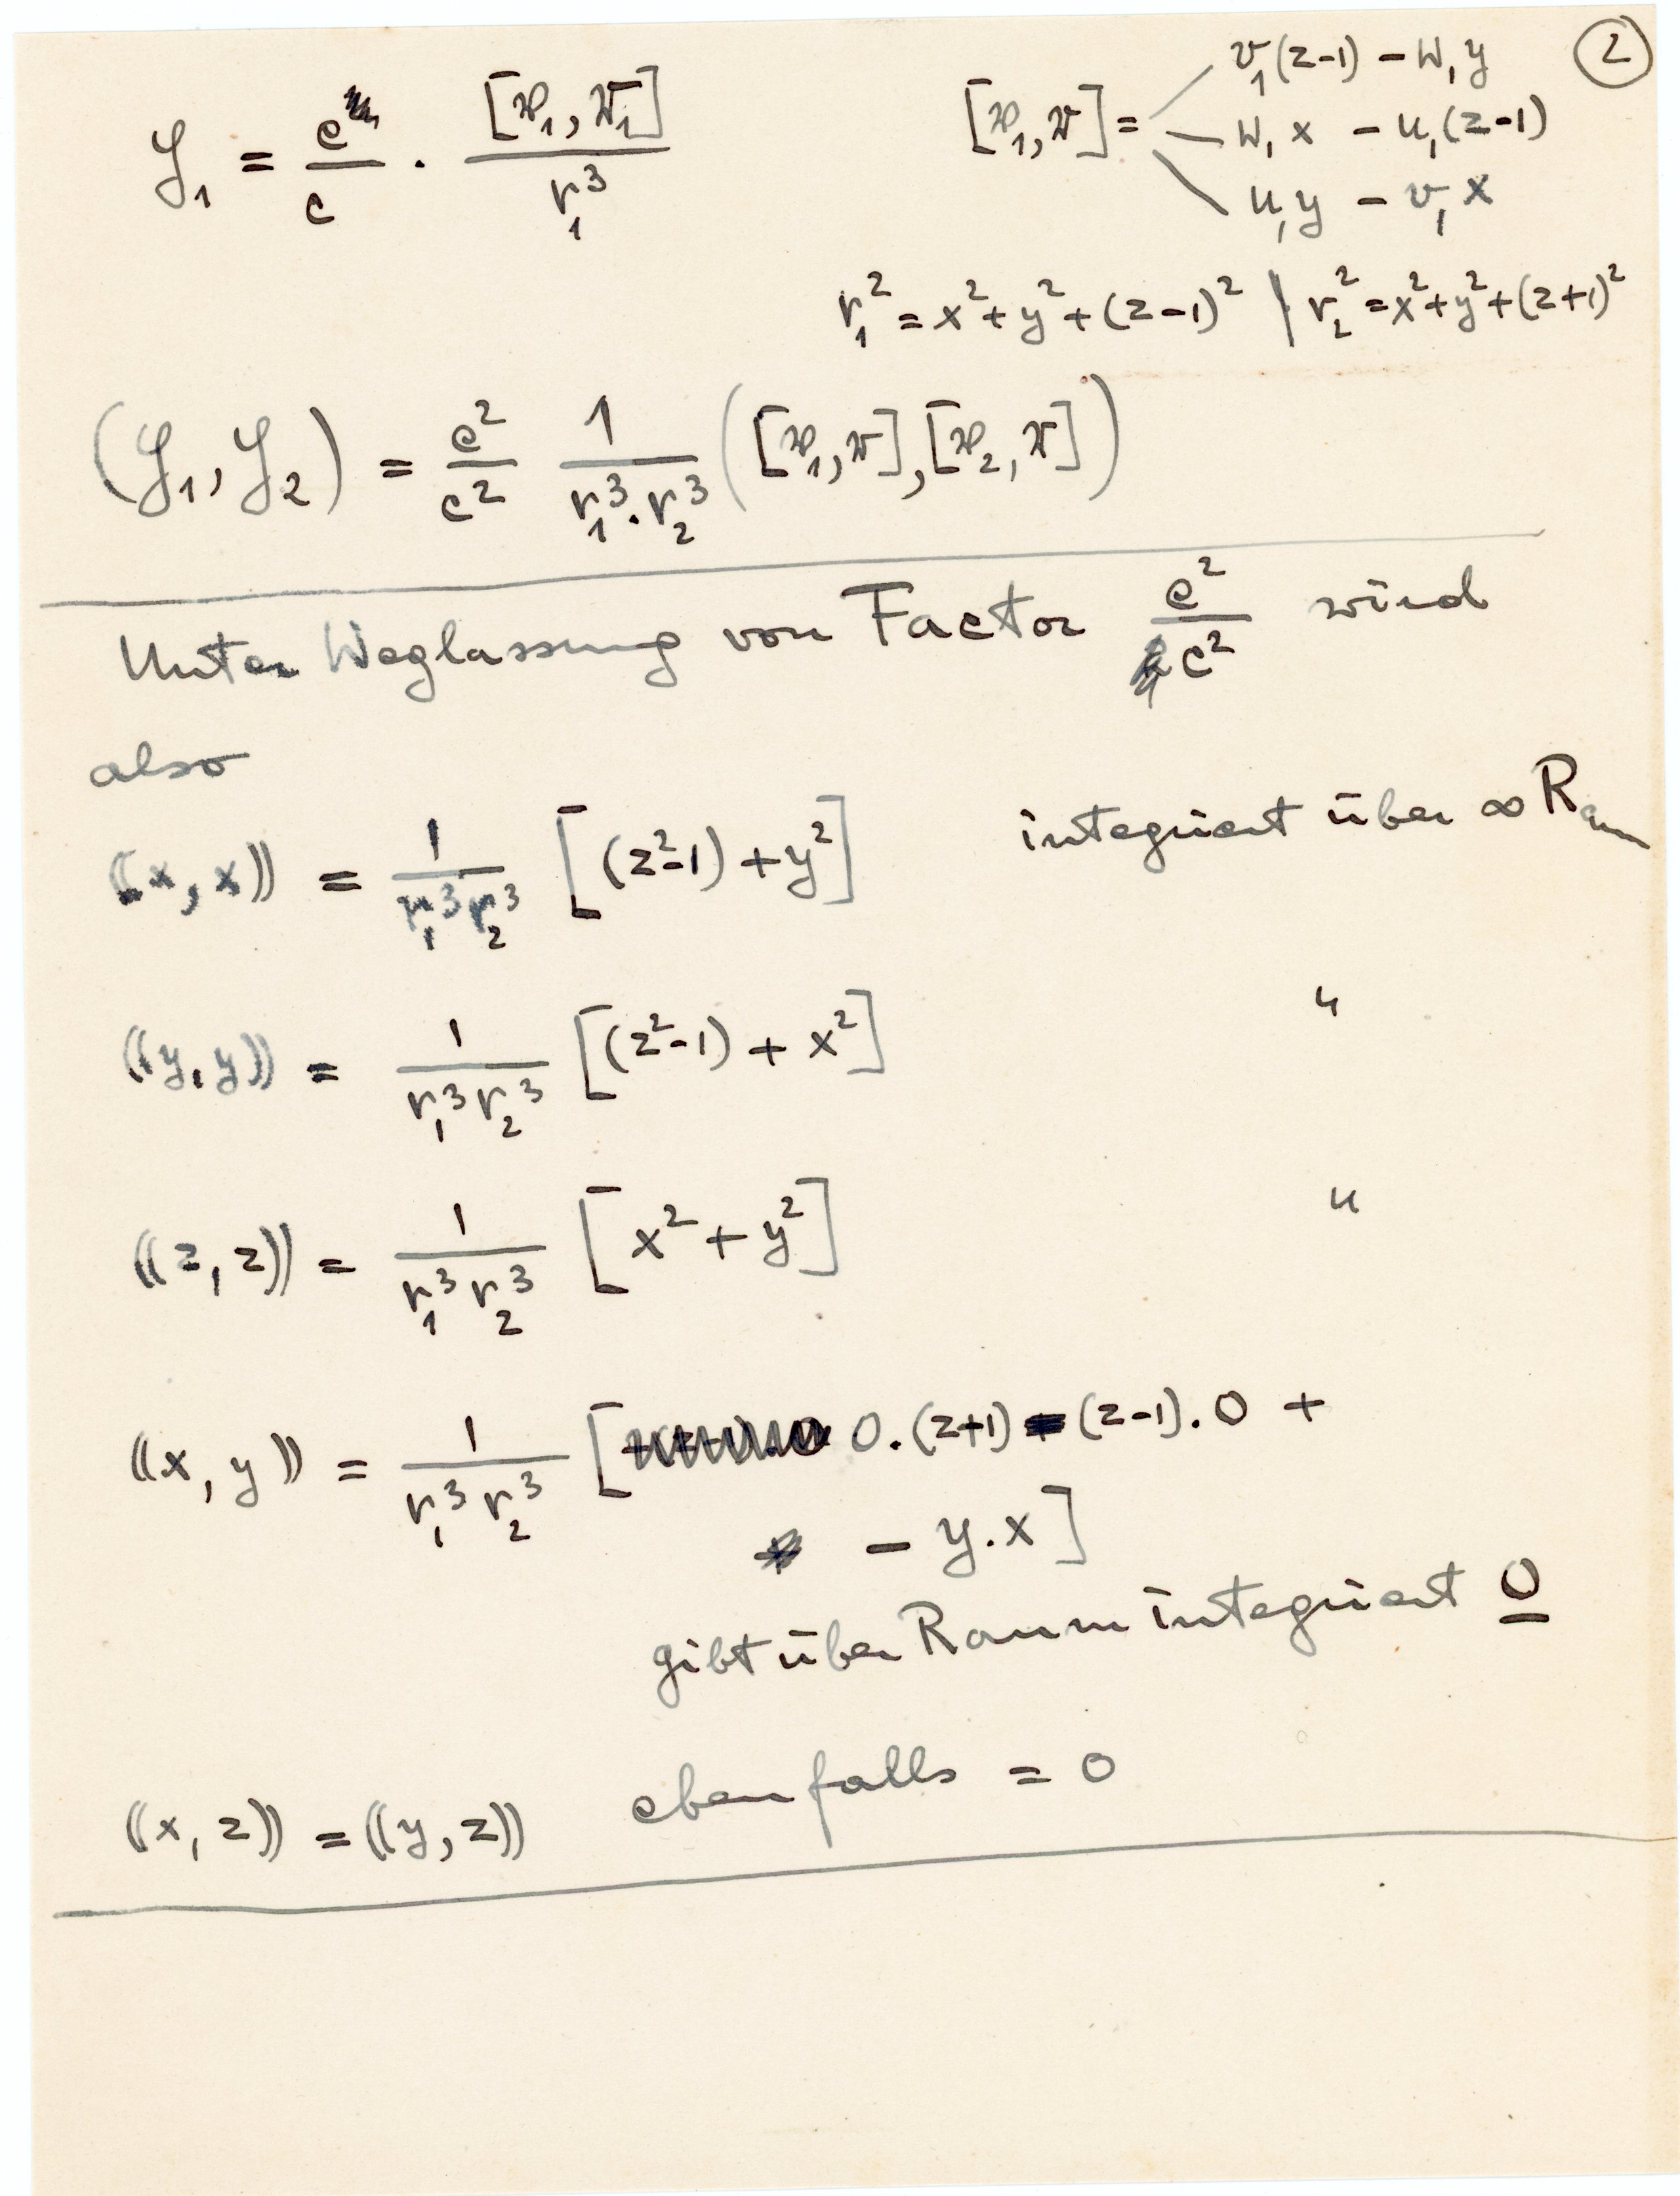 ②
𝔥₁ = e/c · [𝔳₁, 𝔯₁] / r₁³
[𝔳₁, 𝔯] = v₁(z-1) - w₁y
w₁x - u₁(z-1)
u₁y - v₁x
r₁² = x² + y² + (z-1)² | r₂² = x² + y² + (z+1)²
(𝔥₁, 𝔥₂) = e²/c² 1/(r₁³·r₂³) ([𝔳₁, 𝔯], [𝔳₂, 𝔯])
Unter Weglassung von Factor e²/c² wird
also
((x, x)) = 1/(r₁³r₂³) [(z²-1) + y²] integriert über ∞ Raum
((y, y)) = 1/(r₁³r₂³) [(z²-1) + x²] "
((z, z)) = 1/(r₁³r₂³) [x² + y²] "
((x, y)) = 1/(r₁³r₂³) [0·(z+1) - (z-1)·0 +
- y·x]
gibt über Raum integriert 0
((x, z)) = ((y, z)) ebenfalls = 0